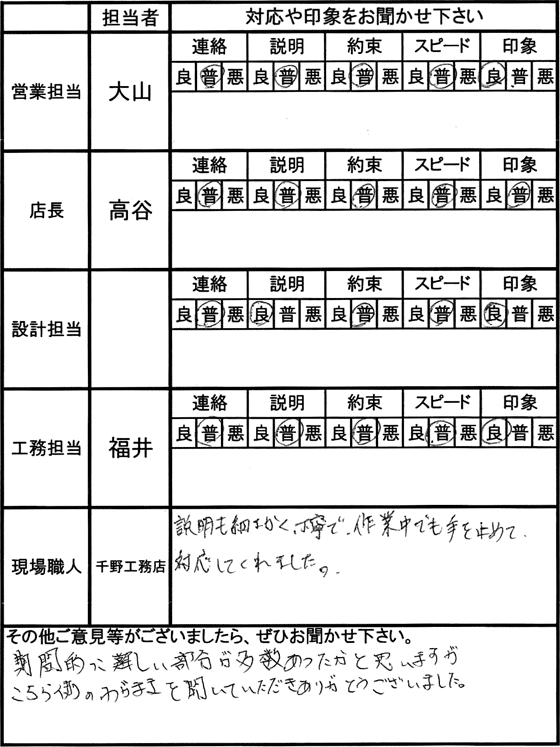 担当者 対応や印象をお聞かせ下さい
営業担当 大山
連絡 説明 約束 スピード 印象
良 普 悪 良 普 悪 良 普 悪 良 普 悪 良 普 悪
店長 高谷
連絡 説明 約束 スピード 印象
良 普 悪 良 普 悪 良 普 悪 良 普 悪 良 普 悪
設計担当
連絡 説明 約束 スピード 印象
良 普 悪 良 普 悪 良 普 悪 良 普 悪 良 普 悪
工務担当 福井
連絡 説明 約束 スピード 印象
良 普 悪 良 普 悪 良 普 悪 良 普 悪 良 普 悪
現場職人 千野工務店
説明も細かく、丁寧で、作業中でも手を止めて
対応してくれました。
その他ご意見等がございましたら、ぜひお聞かせ下さい。
期間的に難しい部分が多数あったかと思いますが
こちら側のわがままを聞いていただきありがとうございました。